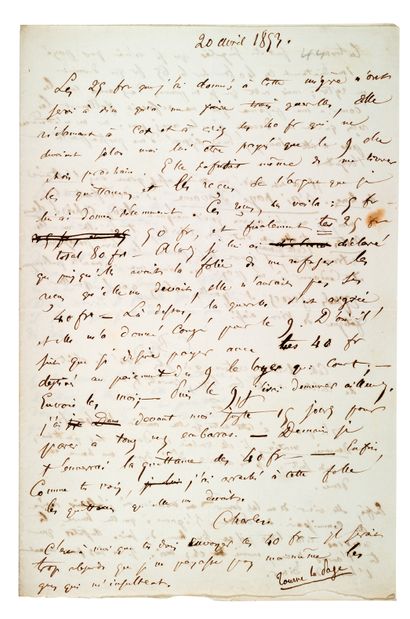 20 avril 1853.
Les 25 fr que j'ai donnés à cette mégère n'ont
servi à rien qu'à me faire trois querelles, elle
réclamant à cor et à cri les 40 fr qui ne
devaient selon moi lui être payés que le 9 de
mois prochain. Elle refusait même de me donner
les quittances et les reçus de l'argent que je
lui ai donné récemment. Les reçus, les voilà : 5 fr
50 fr et finalement tes 25 fr
total 80 fr – Alors je lui ai déclaré
que puisqu'elle avait la folie de me refuser les
reçus qu'elle me devait, elle n'aurait pas ses
40 fr – Là-dessus, la querelle s'est augmentée
et elle m'a donné congé pour le 9. D'ici là,
fait que je désire payer avec tes 40 fr
destiné au paiement du 9 le loyer qui court,
Envoie-les moi, – Puis le 9 j'irai demeurer ailleurs
j'ai devant moi juste 15 jours pour
parer à tous mes embarras. – Demain je
t'enverrai la quittance des 40 fr – Enfin,
Comme tu vois, j'ai arraché à cette folle
les quittances qu'elle me devait.
Charles
C'est à moi que tu dois envoyer les 40 fr – il serait
trop absurde que je ne payasse pas moi-même les
gens qui m'insultent.
Tourne la page